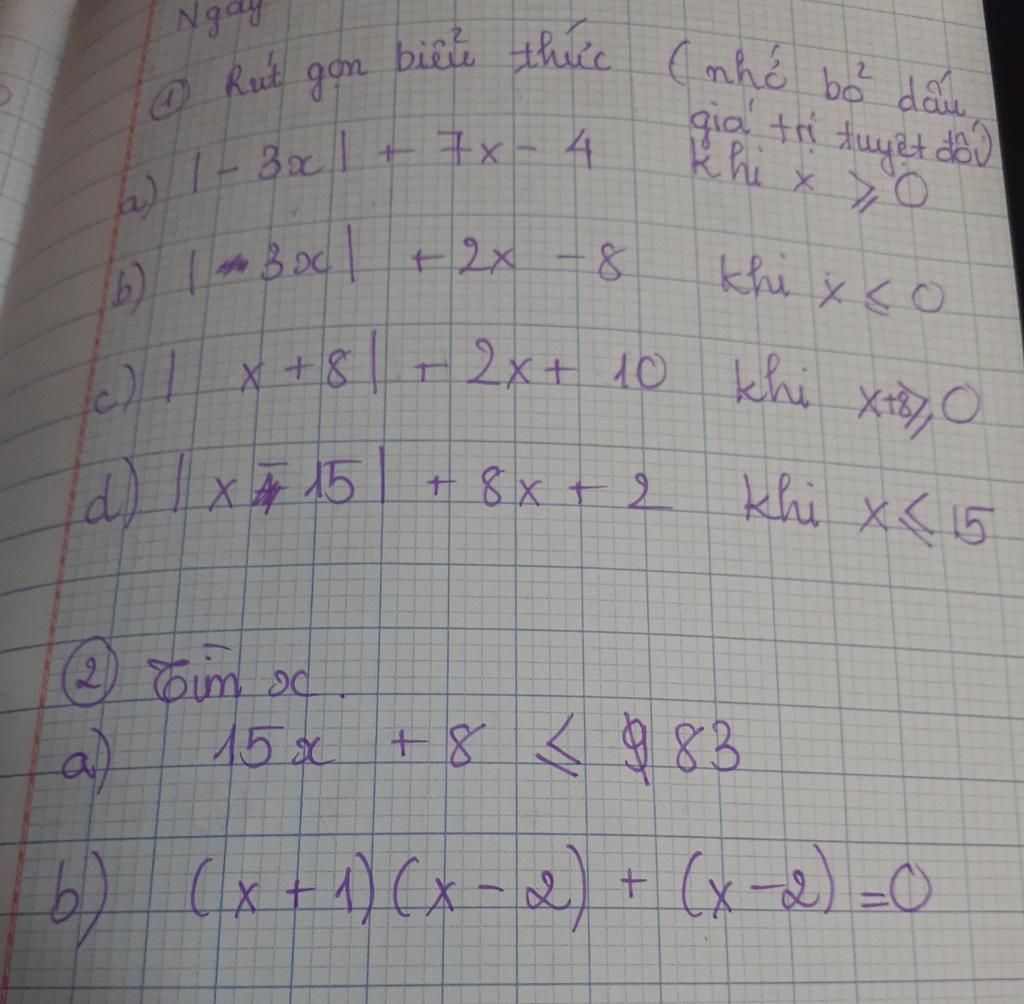 Ngày
① Rút gọn biểu thức (nhớ bỏ dấu
giá trị tuyệt đối)
a) |-3x| + 7x - 4 khi x ⩾ 0
b) |-3x| + 2x - 8 khi x ⩽ 0
c) | x + 8| + 2x + 10 khi x+8⩾0
d) |x - 15| + 8x + 2 khi x ⩽ 15
② Tìm x.
a) 15x + 8 ⩽ 83
b) (x + 1)(x - 2) + (x - 2) = 0